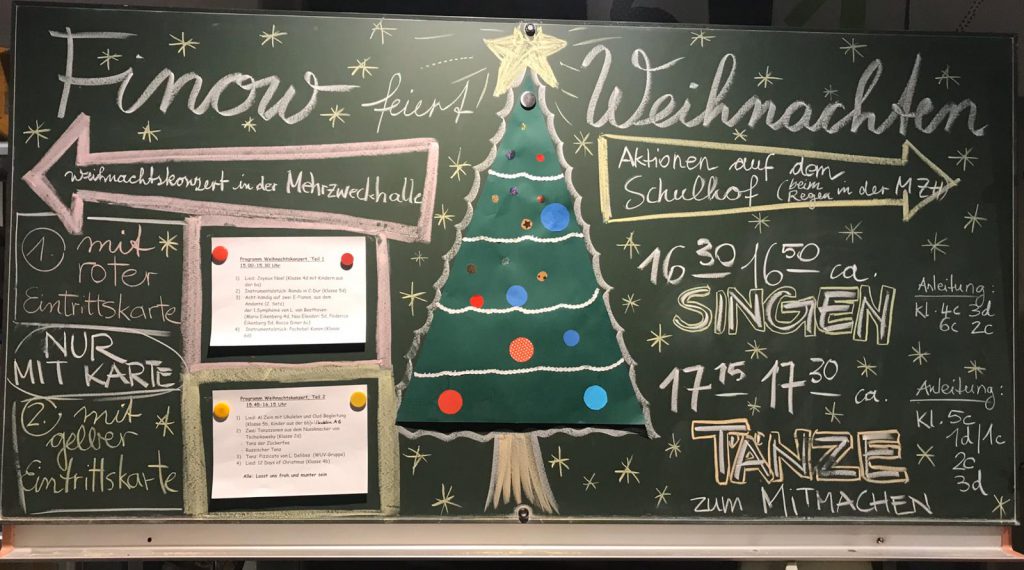 Finow feiert! Weihnachten
Weihnachtskonzert in der Mehrzweckhalle
1. mit
roter
Eintrittskarte
NUR
MIT KARTE
2. mit
gelber
Eintrittskarte
Programm Weihnachtskonzert, Teil 1
15.00-15.30 Uhr
1) Lied: Joyeux Noel (Klasse 4d mit Kindern aus
der 6a)
2) Instrumentalstück: Rondo in C-Dur (Klasse 5d)
3) Acht-händig auf zwei E-Pianos, aus dem
Andante (2. Satz)
der 1. Symphonie von L. van Beethoven
4) Instrumentalstück: Pachelbel Kanon (Klasse
6d)
Programm Weihnachtskonzert, Teil 2
15.45-16.15 Uhr
1) Lied: Al Zain mit Ukulelen und Oud Begleitung
2) Zwei Tanzszenen aus dem Nussknacker von
Tschaikowsky (Klasse 2a)
Tanz der Zuckerfee
Russischer Tanz
3) Tanz: Pizzicato von L. Delibes (WUV-Gruppe)
4) Lied: 12 Days of Christmas (Klasse 4b)
Alle: Lasst uns froh und munter sein
Aktionen auf dem
Schulhof (beim Regen in der MZH)
16 30 - 16 50 ca.
SINGEN
Anleitung:
Kl. 4c 3d
6c 2c
17 15 - 17 30 ca.
TÄNZE
zum MITMACHEN
Anleitung:
Kl. 5c
1d/1c
2c
3d